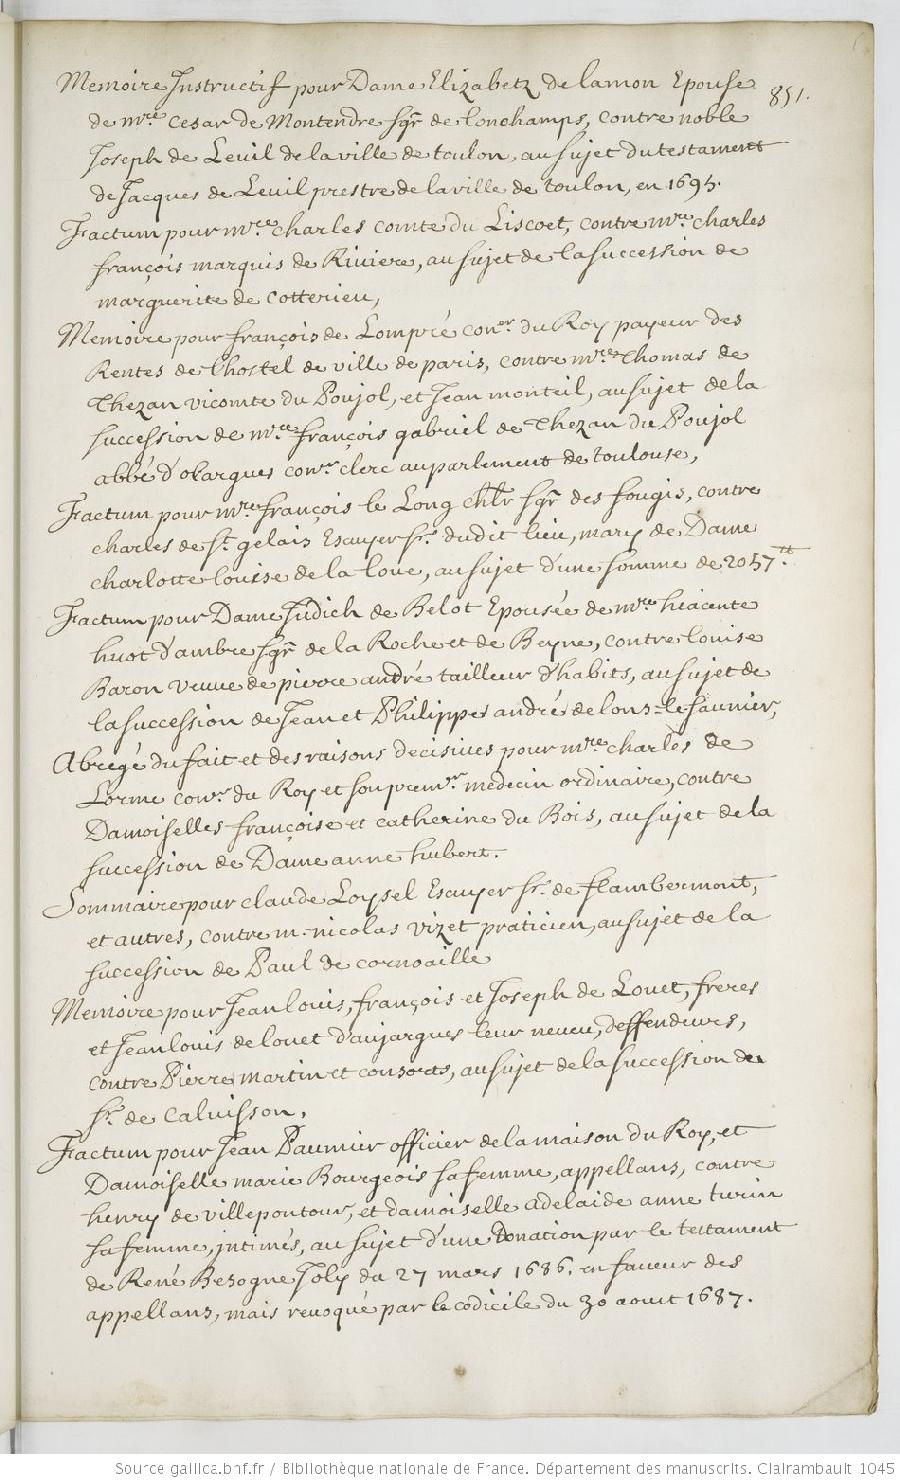 851.
Memoire Instructif pour Dame Elizabetz de lamon Epouse
de mre. cesar de Montendre sgr de lonchamps, contre noble
Joseph de Leuil de la ville de toulon, au sujet du testament
de Jacques de Leuil prestre de la ville de toulon, en 1695.
Factum pour mre. charles comte du Liscoet, contre mre. charles
françois marquis de Riviere, au sujet de la succession de
marguerite de cotterieu,
Memoire pour françois de Lompré coner. du Roy payeur des
Rentes de lhostel de ville de paris, contre mre. Thomas de
Thezan vicomte du Poujol, et Jean monteil, au sujet de la
succession de mre. françois gabriel de Thezan du Poujol
abbé d'olargues coner. clerc au parlement de toulouse,
Factum pour mre. françois le Long chlr sgr des fougis, contre
charles de st. gelais Escuyer sr. du dit lieu, mary de Dame
charlotte louise de la loue, au sujet d'une somme de 2057tt.
Factum pour Dame Judich de Belot Epousée de mre. hiacente
huot d'ambre sgr de la Roche et de Beyne, contre louise
Baron veuve de pierre andré tailleur d'habits, au sujet de
la succession de Jean et Philippe andré de lons-le saunier,
Abregé du fait et des raisons decisives pour mre. charles de
Lorme coner. du Roy et son premr. medecin ordinaire, contre
Damoiselles françoise et catherine du Bois, au sujet de la
succession de Dame anne hubert.
Sommaire pour claude Loysel Escuyer sr. de flambermont,
et autres, contre m. nicolas vizet praticien, au sujet de la
succession de Paul de cornoaille
Memoire pour Jean louis, françois et Joseph de Louet, freres
et Jean louis de louet d'aujargues leur neveu, deffendeurs,
contre Pierre martin et consorts, au sujet de la succession du
sr. de calvisson,
Factum pour Jean Paumier officier de la maison du Roy, et
Damoiselle marie Bourgeois sa femme, appellans, contre
henry de villepontour, et damoiselle adelaide anne turin
sa femme, intimés, au sujet d'une Donation par le testament
de René Bezogne Joly du 27 mars 1686. en faveur des
appellans, mais revoqué par le codicile du 30 aoust 1687.
Source gallica.bnf.fr / Bibliothèque nationale de France. Département des manuscrits. Clairambault 1045